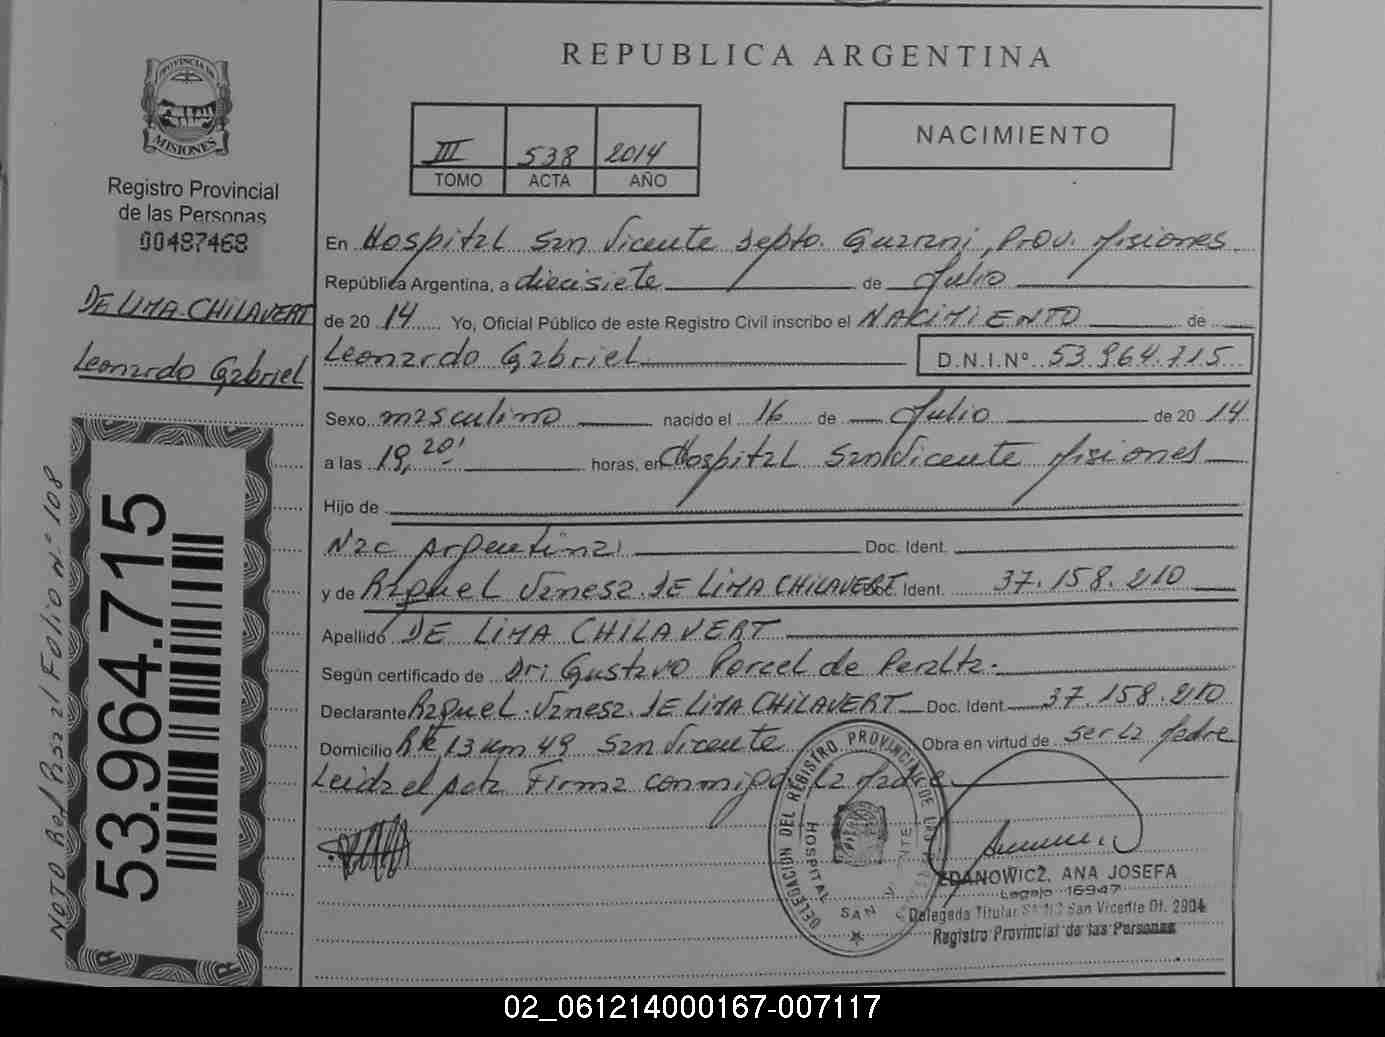 REPUBLICA ARGENTINA
PROVINCIA DE
MISIONES
Registro Provincial
de las Personas
00487468
DE LIMA CHILAVERT
Leonardo Gabriel
53.964.715
III 538 2014
TOMO ACTA AÑO
NACIMIENTO
En Hospital San Vicente depto. Guarani, Prov. Misiones
República Argentina, a diecisiete de Julio
de 20 14 Yo, Oficial Público de este Registro Civil inscribo el NACIMIENTO de
Leonardo Gabriel D.N.I.Nº 53.964.715
Sexo masculino nacido el 16 de Julio de 20 14
a las 19,20' horas, en Hospital San Vicente Misiones
Hijo de
Nac Argentina Doc. Ident.
y de Raquel Vanesa DE LIMA CHILAVERT Ident. 37.158.210
Apellido DE LIMA CHILAVERT
Según certificado de Dr: Gustavo Porcel de Peralta.
Declarante Raquel Vanesa DE LIMA CHILAVERT Doc. Ident. 37.158.210
Domicilio Rta 13 Km 49 San Vicente Obra en virtud de ser la Madre
Leida el Acta Firma conmigo La Madre
DELEGACION DEL REGISTRO PROVINCIAL DE LAS
HOSPITAL SAN VICENTE
ZDANOWICZ, ANA JOSEFA
Legajo 16947
Delegada Titular San Vicente Of. 2904
Registro Provincial de las Personas
NOTO Ref Pasa al Folio Nº 108
02_061214000167-007117